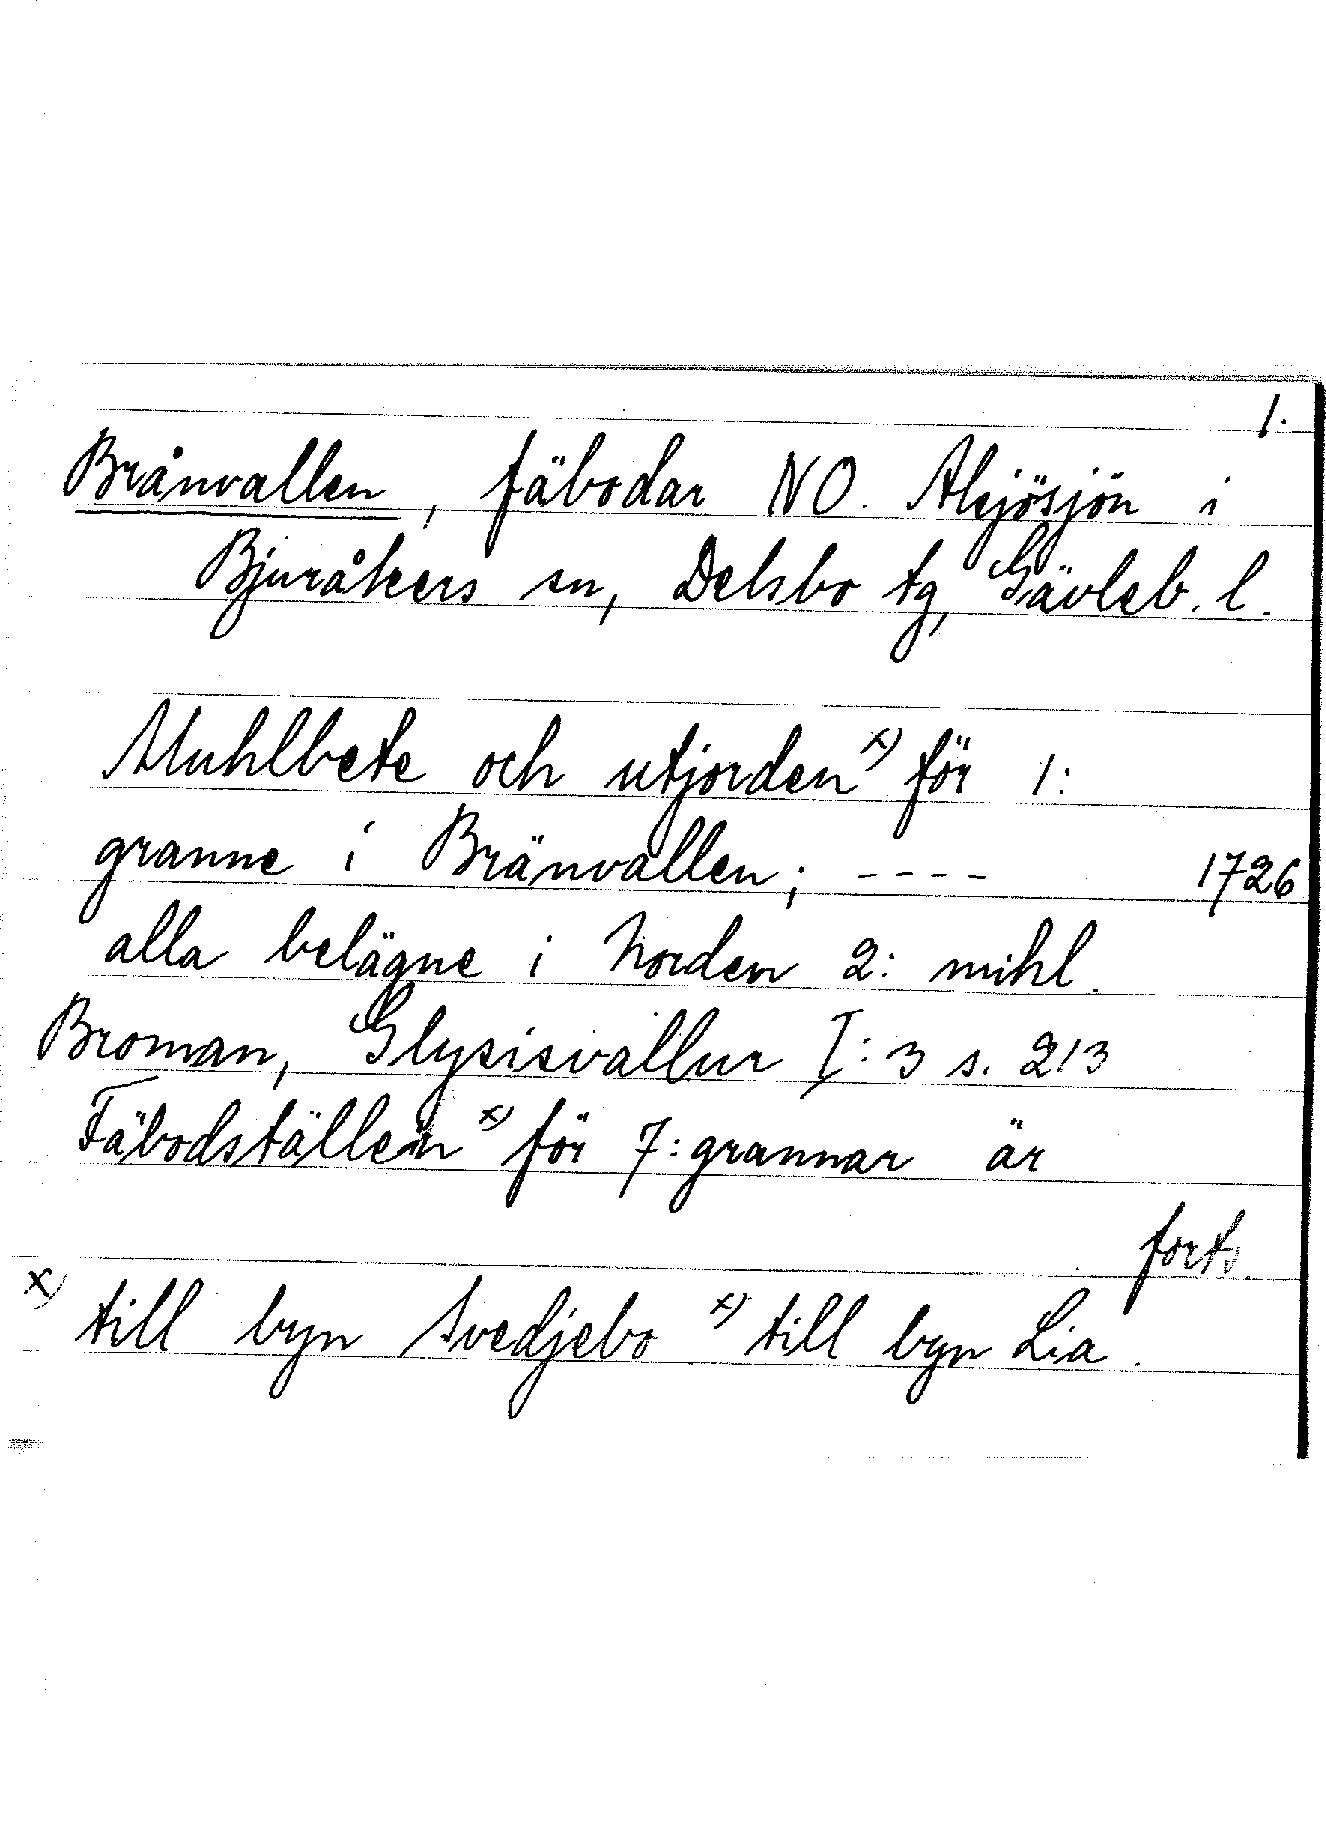 1.
Brånvallen, fäbodar NO. Alsjösjön i
Bjuråkers sn, Delsbo tg, Gävleb. l.
Muhlbete och utjorden x) för 1:
granne i Bränvallen; ---- 1726
alla belägne i Norden 2: mihl.
Broman, Glysisvallur I:3 s. 213
Fäbodställen x) för 7: grannar är
forts.
x) till byn Svedjebo x) till byn Lia.